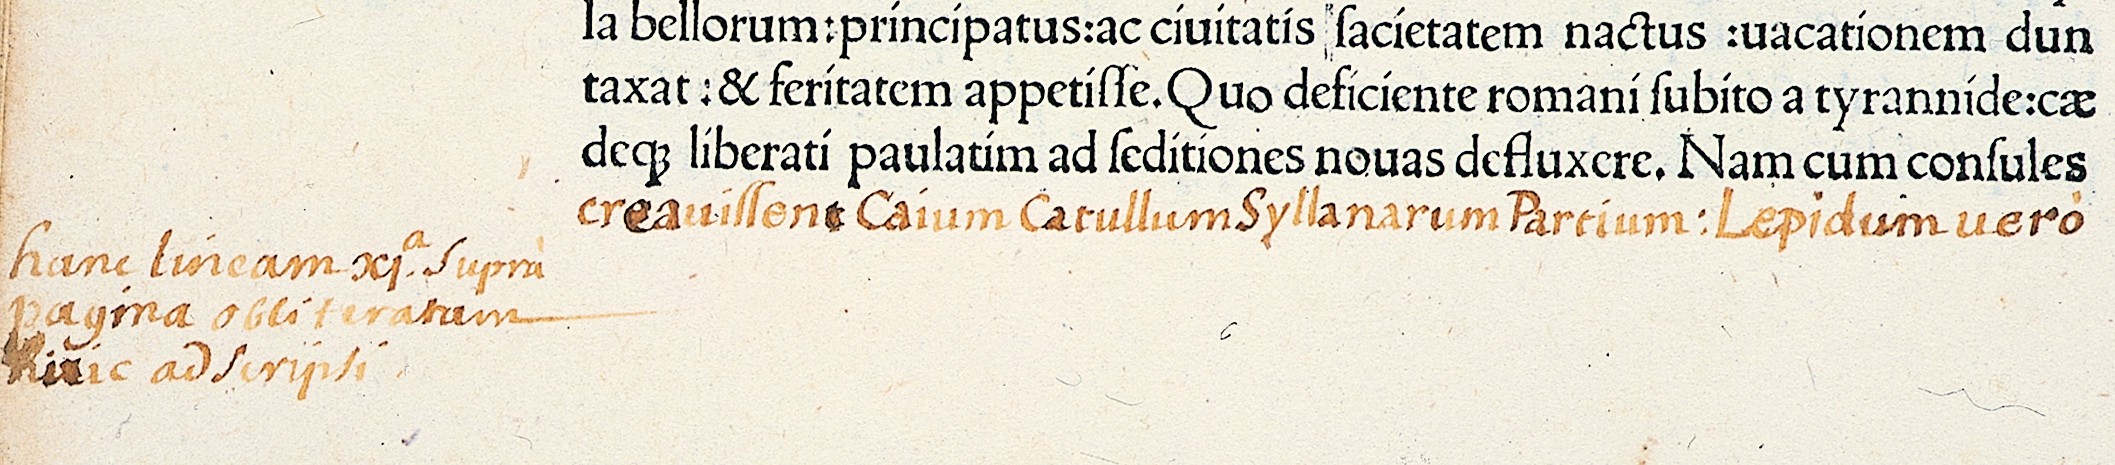 la bellorum:principatus:ac ciuitatis ſacietatem nactus :uacationem dun
taxat:& feritatem appetiſſe.Quo deficiente romani ſubito a tyrannide:cæ
deqꝫ liberati paulatim ad ſeditiones nouas defluxere. Nam cum conſules
creauiſſent Caium Catullum Syllanarum Partium: Lepidum uerò
hanc lineam xj.ᵃ Suprà
pagina obliteratam
huic adscripsi